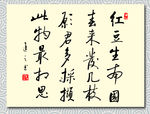 红豆生南国
春来發几枝
愿君多採擷
此物最相思